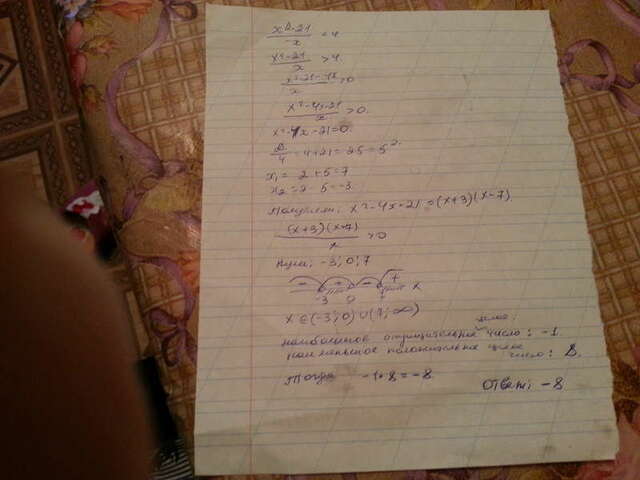 x²-21 / -x < 4
x²-21 / x > 4
x²-21-4x / x > 0
x²-4x-21 / x > 0.
x²-4x-21=0.
D/4 = 4+21=25=5².
x₁= 2+5=7
x₂=2-5=-3.
Получаем: x²-4x-21=(x+3)(x-7).
(x+3)(x-7) / x > 0
Нули: -3; 0; 7
- + - + x
-3 0 7
x∈(-3;0)∪(7;∞)
целое:
наибольшее отрицательное число: -1.
наименьшее положительное целое
число: 8.
Тогда -1*8=-8
Ответ: -8